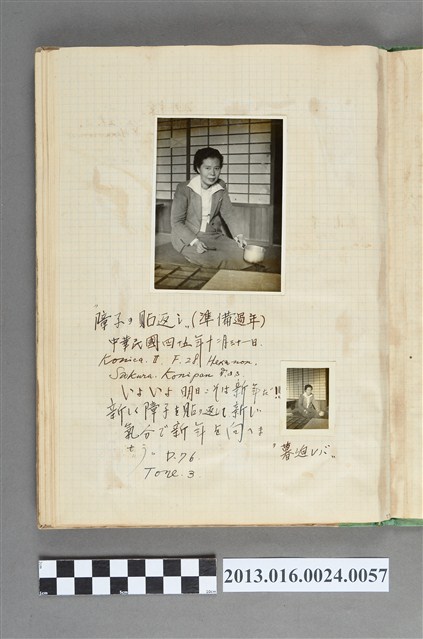 "障子ヲ貼返シ"(準備過年)
中華民國四五年十二月卅一日.
Konica. II. F.2.8 Hexanon.
Sakura. Konipan
いよいよ明日こそは新年だ!!
新しく障子を貼り返して新しい
氣分で新年を向へま
せう。 D.76
Tone. 3
"暮迫レバ"
2013.016.0024.0057